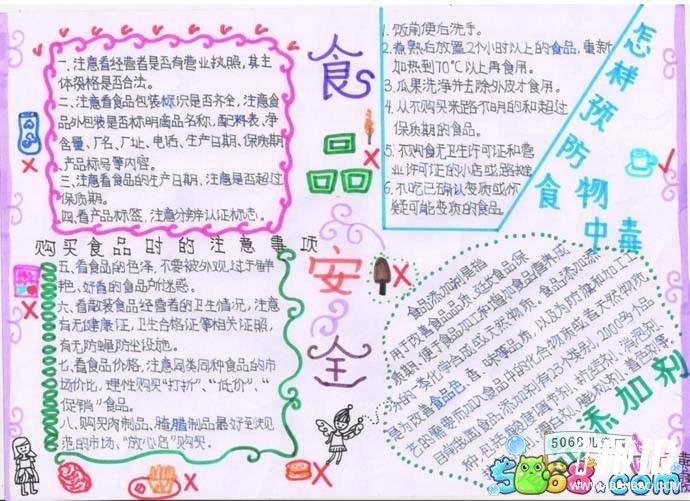 一、注意看经营者是否有营业执照，其主
体资格是否合法。
二、注意看食品包装标识是否齐全，注意食
品外包装是否标明商品名称、配料表、净
含量、厂名、厂址、电话、生产日期、保质期、
产品标号等内容。
三、注意看食品的生产日期，注意是否超过
保质期。
四、看产品标签，注意分辨认证标志。
购买食品时的注意事项
五、看食品的色泽，不要被外观过于鲜
艳、好看的食品所迷惑。
六、看散装食品经营者的卫生情况，注意
有无健康证，卫生合格证等相关证照，
有无防蝇防尘设施。
七、看食品价格，注意同类同种食品的市
场价比，理性购买“打折”、“低价”、“
促销”食品。
八、购买肉制品、腌腊制品最好到规
范的市场、“放心店”购买。
食品安全
1. 饭前便后洗手。
2. 煮熟后放置2个小时以上的食品，重新
加热到70℃以上再食用。
3. 瓜果洗净并去除外皮才食用。
4. 从不购买来路不明的和超过
保质期的食品。
5. 不购食无卫生许可证和营
业许可证的小店或路摊
6. 不吃已确认变质或怀
疑可能变质的食品
怎样预防食物中毒
食品添加剂是指
用于改善食品品质、延长食品保
质期、便于食品加工和增加食品营养成
分的一类化学合成或天然物质。食品添加剂
是为改善食品色、香、味等品质，以及为防腐和加工工
艺的需要而加入食品中的化合物质或者天然物质。
目前我国食品添加剂有23个类别，2000多个品
种，包括酸度调节剂、抗结剂、消泡剂、
添加剂
5068儿童网
www.BANBAO.com